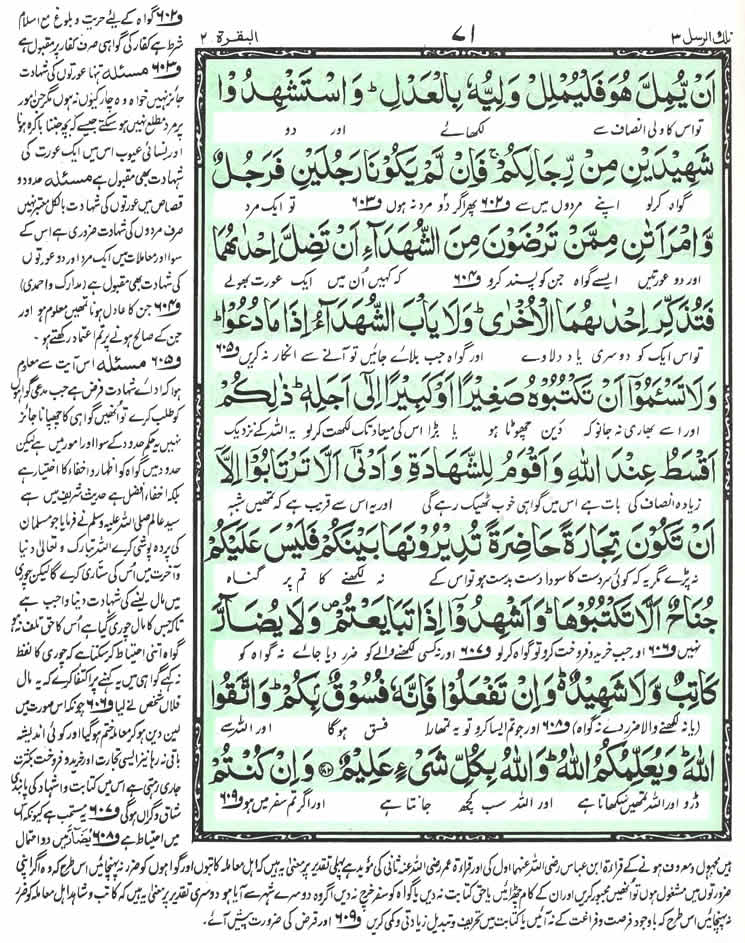 تلك الرسل ٣
٧١
البقرة ٢
اَنْ يُّمِلَّ هُوَ فَلْيُمْلِلْ وَلِيُّهٗ بِالْعَدْلِ ؕ وَاسْتَشْهِدُوْا
تو اس کا ولی انصاف سے لکھائے اور دو
شَهِيْدَيْنِ مِنْ رِّجَالِكُمْ ۚ فَاِنْ لَّمْ يَكُوْنَا رَجُلَيْنِ فَرَجُلٌ
گواہ کرلو اپنے مردوں میں سے و۶۰۲ پھر اگر دو مرد نہ ہوں و۶۰۳ تو ایک مرد
وَّ امْرَاَتٰنِ مِمَّنْ تَرْضَوْنَ مِنَ الشُّهَدَآءِ اَنْ تَضِلَّ اِحْدٰىهُمَا
اور دو عورتیں ایسے گواہ جن کو پسند کرو و۶۰۴ کہ کہیں اُن میں ایک عورت بھولے
فَتُذَكِّرَ اِحْدٰىهُمَا الْاُخْرٰى ؕ وَلَا يَاْبَ الشُّهَدَآءُ اِذَا مَا دُعُوْا ؕ
تو اس ایک کو دوسری یاد دلاوے اور گواہ جب بلائے جائیں تو آنے سے انکار نہ کریں و۶۰۵
وَلَا تَسْـَٔمُوْۤا اَنْ تَكْتُبُوْهُ صَغِيْرًا اَوْ كَبِيْرًا اِلٰۤى اَجَلِهٖ ؕ ذٰلِكُمْ
اور اسے بھاری نہ جانو کہ دَین چھوٹا ہو یا بڑا اس کی میعاد تک لکھت کرلو یہ اللہ کے نزدیک
اَقْسَطُ عِنْدَ اللّٰهِ وَ اَقْوَمُ لِلشَّهَادَةِ وَ اَدْنٰۤى اَلَّا تَرْتَابُوْۤا اِلَّاۤ
زیادہ انصاف کی بات ہے اس میں گواہی خوب ٹھیک رہے گی اور یہ اس سے قریب ہے کہ تمھیں شبہہ
اَنْ تَكُوْنَ تِجَارَةً حَاضِرَةً تُدِيْرُوْنَهَا بَيْنَكُمْ فَلَيْسَ عَلَيْكُمْ
نہ پڑے مگر یہ کہ کوئی سردست کا سودا دست بدست ہو تو اس کے نہ لکھنے کا تم پر گناہ
جُنَاحٌ اَلَّا تَكْتُبُوْهَا ؕ وَ اَشْهِدُوْۤا اِذَا تَبَايَعْتُمْ ۪ وَلَا يُضَآرَّ
نہیں و۶۰۶ اور جب خرید و فروخت کرو تو گواہ کرلو و۶۰۷ اور نہ کسی لکھنے والے کو ضرر دیا جائے نہ گواہ کو
كَاتِبٌ وَّلَا شَهِيْدٌ ۬ؕ وَ اِنْ تَفْعَلُوْا فَاِنَّهٗ فُسُوْقٌۢ بِكُمْ ؕ وَ اتَّقُوا
(یا نہ لکھنے والا ضرر دے نہ گواہ) و۶۰۸ اور جو تم ایسا کرو تو یہ تمھارا فسق ہوگا اور اللہ سے
اللّٰهَ ؕ وَ يُعَلِّمُكُمُ اللّٰهُ ؕ وَ اللّٰهُ بِكُلِّ شَىْءٍ عَلِيْمٌ ۲۸۲ وَ اِنْ كُنْتُمْ
ڈرو اور اللہ تمھیں سکھاتا ہے اور اللہ سب کچھ جانتا ہے اور اگر تم سفر میں ہو و۶۰۹
و۶۰۲ گواہ کے لیے حریت و بلوغ مع اسلام
شرط ہے کفار کی گواہی صرف کفار پر مقبول ہے
و۶۰۳ مسئلہ تنہا عورتوں کی شہادت
جائز نہیں خواہ وہ چار کیوں نہ ہوں مگر جن امور
پر مرد مطلع نہیں ہو سکتے جیسے کہ بچہ جننا باکرہ ہونا
اور نسائی عیوب اس میں ایک عورت کی
شہادت بھی مقبول ہے مسئلہ حدود و
قصاص میں عورتوں کی شہادت بالکل معتبر نہیں
صرف مردوں کی شہادت ضروری ہے اس کے
سوا اور معاملات میں ایک مرد اور دو عورتوں
کی شہادت بھی مقبول ہے (مدارک و احمدی)
و۶۰۴ جن کا عادل ہونا تمھیں معلوم ہو اور
جن کے صالح ہونے پر تم اعتماد رکھتے ہو۔
و۶۰۵ مسئلہ اس آیت سے معلوم
ہوا کہ ادائے شہادت فرض ہے جب مدعی گواہوں
کو طلب کرے تو انھیں گواہی کا چھپانا جائز
نہیں یہ حکم حدود کے سوا اور امور میں ہے لیکن
حدود میں گواہ کو اظہار و اخفاء کا اختیار ہے
بلکہ اخفاء افضل ہے حدیث شریف میں ہے
سید عالم صلی اللہ علیہ وسلم نے فرمایا جو مسلمان
کی پردہ پوشی کرے اللہ تبارک و تعالیٰ دنیا
و آخرت میں اس کی ستاری کرے گا لیکن چوری
میں مال لینے کی شہادت دینا واجب ہے
تاکہ جس کا مال چوری کیا گیا ہے اس کا حق تلف نہ ہو
گواہ اتنی احتیاط کر سکتا ہے کہ چوری کا لفظ
نہ کہے گواہی میں یہ کہنے پر اکتفا کرے کہ یہ مال
فلاں شخص نے لیا و۶۰۶ چونکہ اس صورت میں
لین دین ہو کر معاملہ ختم ہوگیا اور کوئی اندیشہ
باقی نہ رہا نیز ایسی تجارت اور خرید و فروخت بکثرت
جاری رہتی ہے اس میں کتابت و اشہاد کی پابندی
شاق و گراں ہوگی و۶۰۷ یہ مستحب ہے کیونکہ اس
میں احتیاط ہے و۶۰۸ یُضَآرَّ میں دو احتمال
ہیں مجہول و معروف ہونے کے قراءۃ ابن عباس رضی اللہ عنہما اول کی اور قراءۃ عمر رضی اللہ عنہ ثانی کی مؤید ہے پہلی تقدیر پر معنی یہ ہیں کہ اہل معاملہ کاتبوں اور گواہوں کو ضرر نہ پہنچائیں اس طرح کہ وہ اگر اپنی
ضرورتوں میں مشغول ہوں تو انھیں مجبور کریں اور ان کے کام چھڑائیں یا حق کتابت نہ دیں یا گواہ کو سفر خرچ نہ دیں اگر وہ دوسرے شہر سے آیا ہو دوسری تقدیر پر معنی یہ ہیں کہ کاتب و شاہد اہل معاملہ کو ضرر
نہ پہنچائیں اس طرح کہ باوجود فرصت و فراغت کے نہ آئیں یا کتابت میں تحریف و تبدیل زیادتی و کمی کریں و۶۰۹ اور قرض کی ضرورت پیش آئے۔